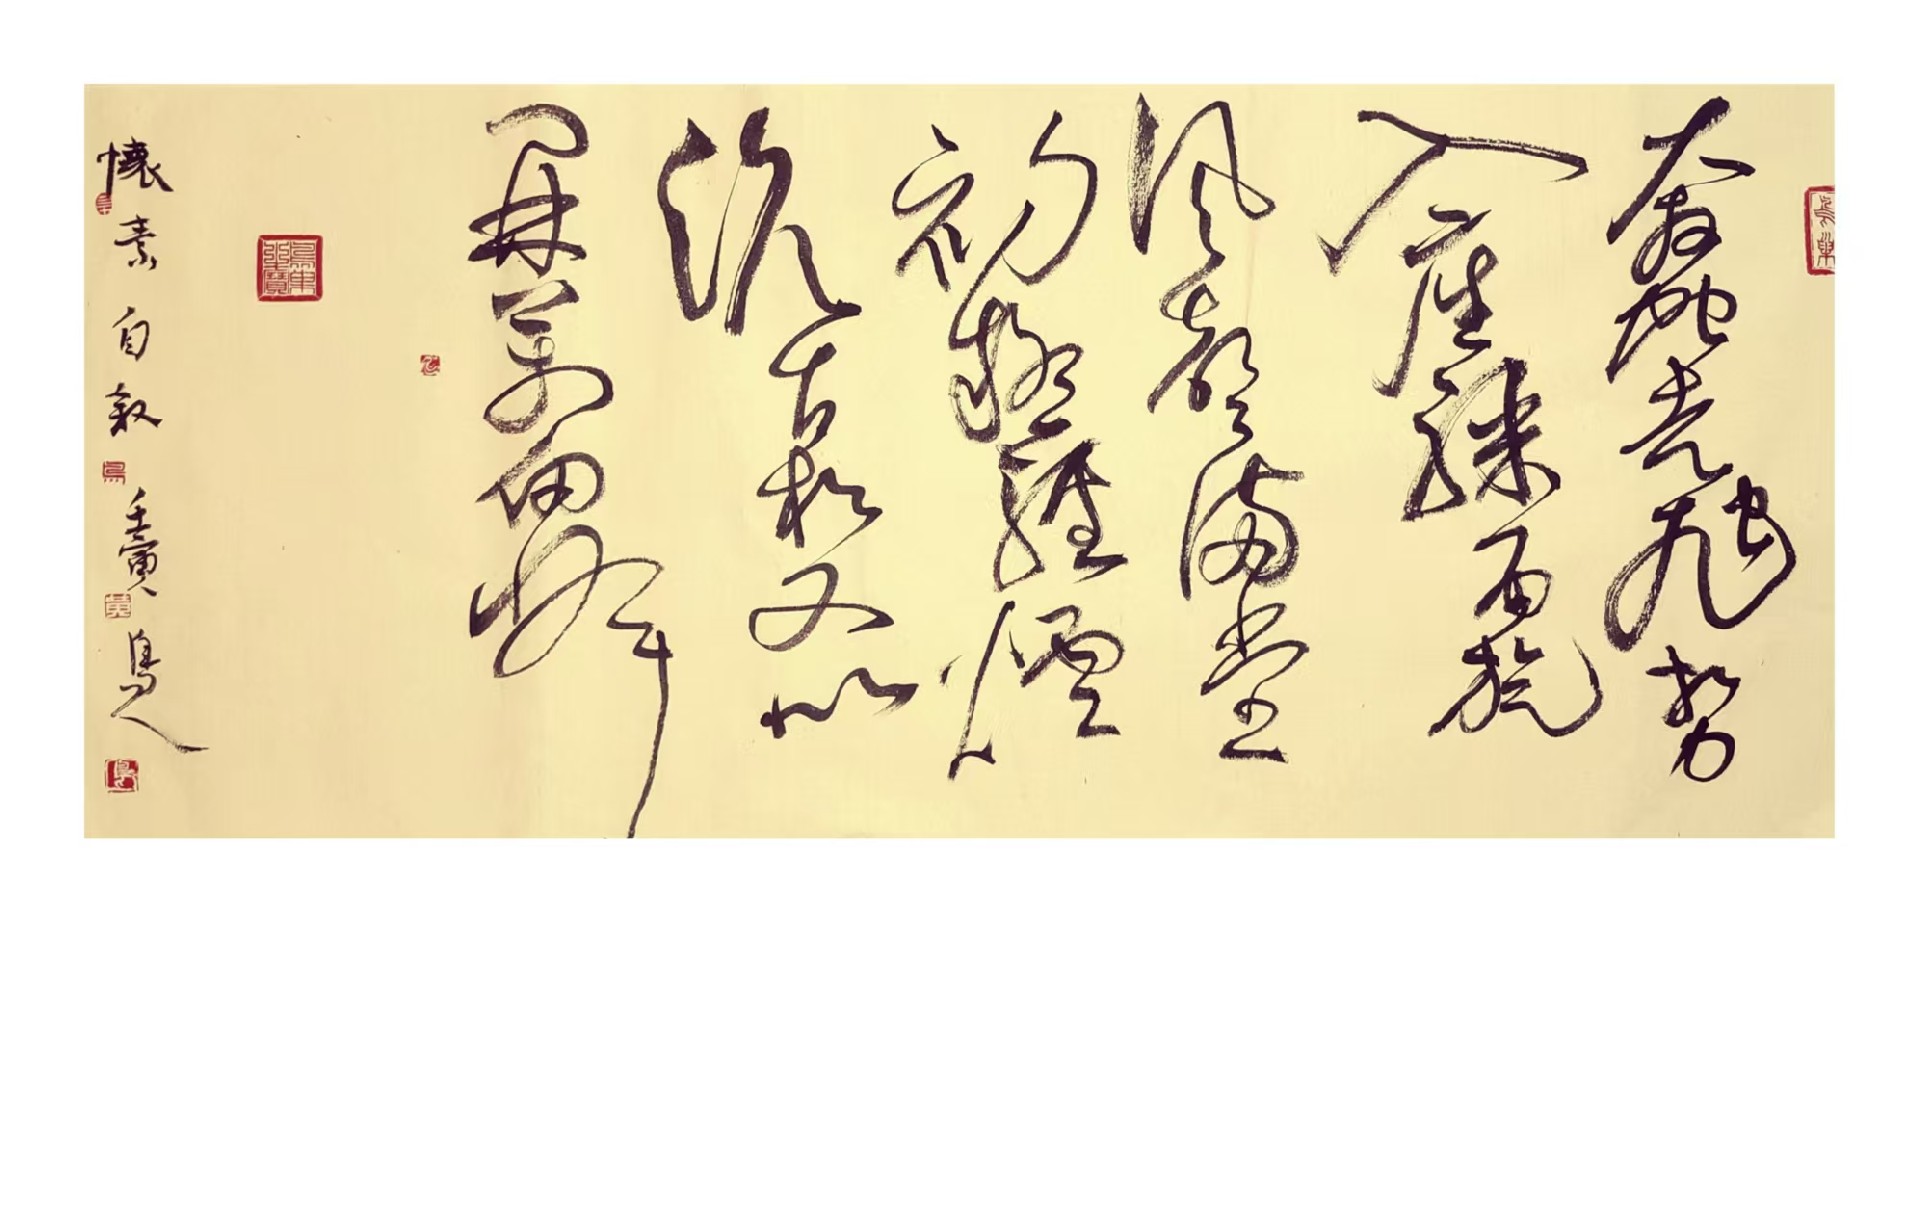 奔蛇走虺勢
入座驟雨旋
風聲滿堂
初疑輕煙
澹古松又似
開萬仞峰
懷素自敘 壬寅 鳥人